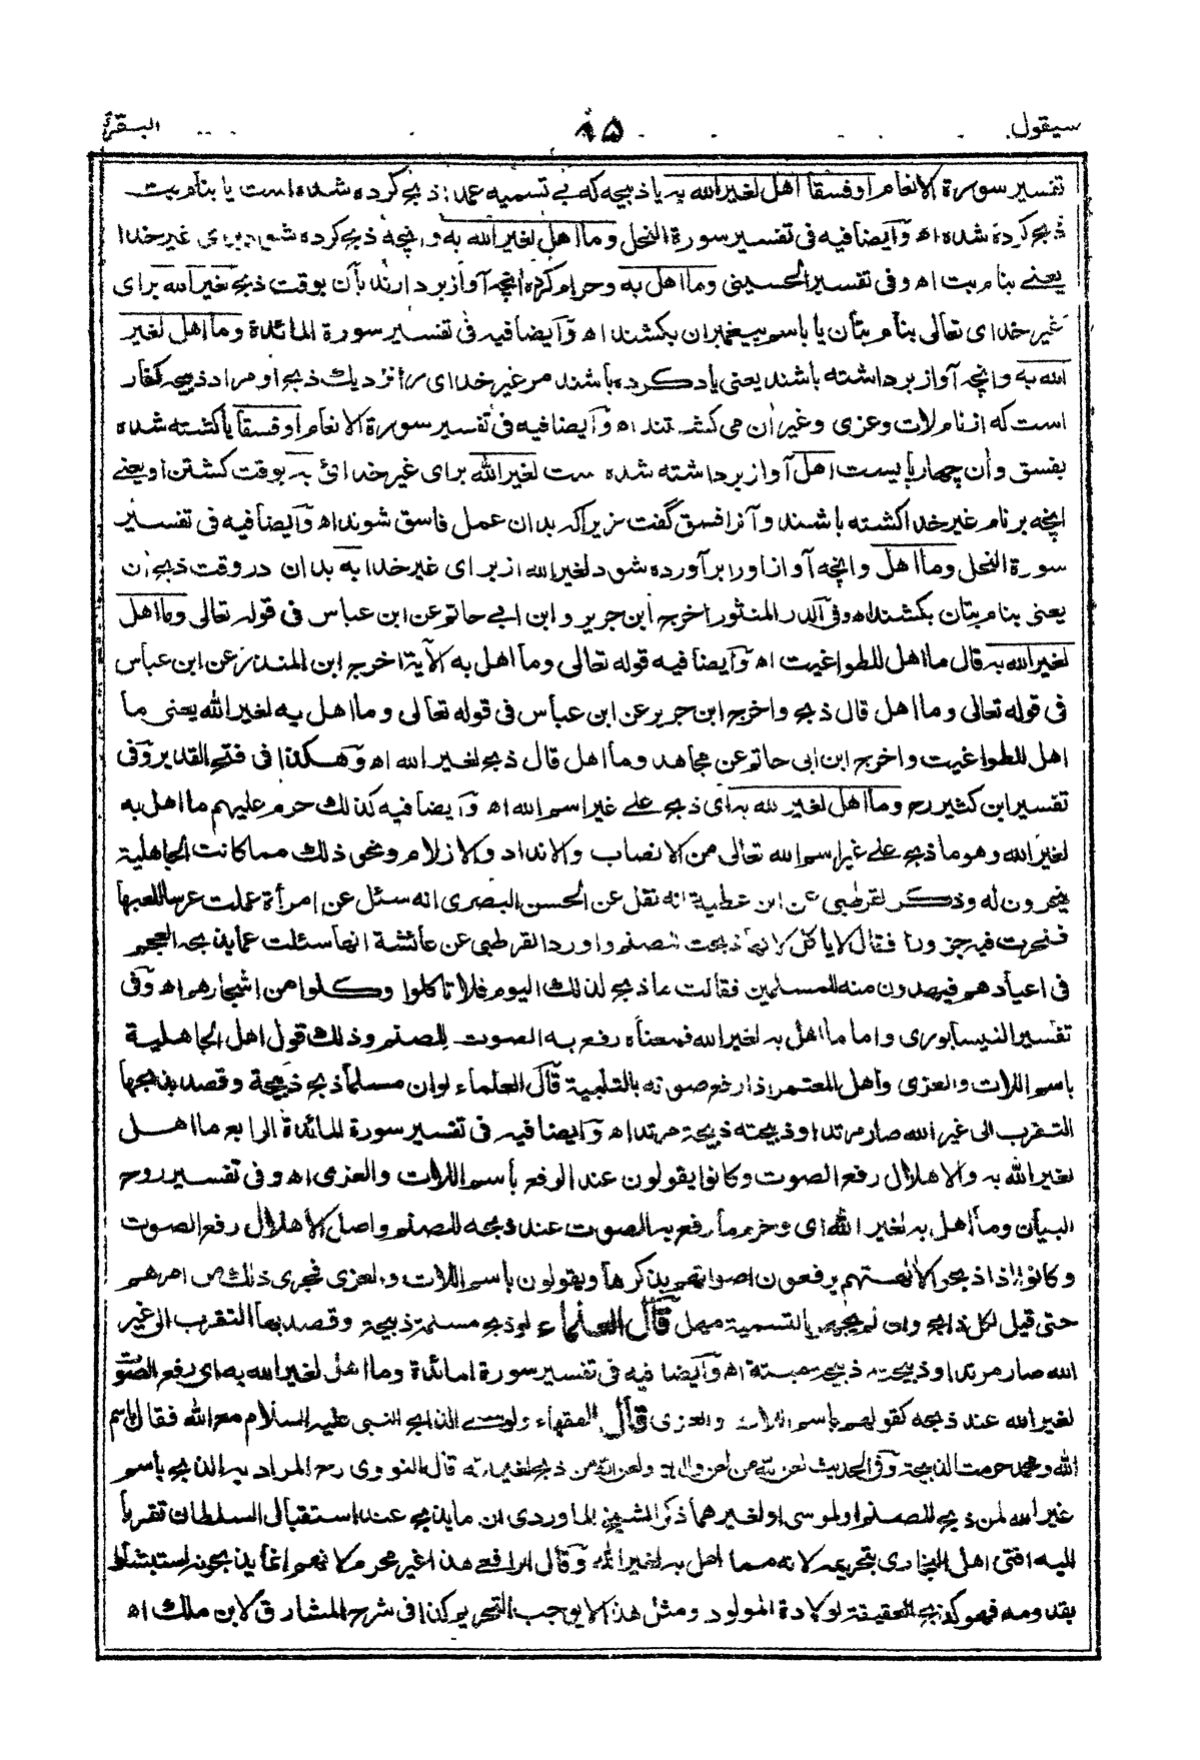 سیقول
۹۵
البقرة
تفسیر سورة الانعام او فسقا اهل لغیر الله به یا ذبیحه که بی تسمیه عمدا ذبح کرده شده است یا بنام بت
ذبح کرده شده اه وایضا فیه فی تفسیر سورة النحل وما اهل لغیر الله به وانچه ذبح کرده شود برای غیر خدا
یعنے بنام بت اه وفی تفسیر الحسینی وما اهل به وحرام کرده انچه آواز بردارند بآن بوقت ذبح لغیر الله برای
غیر خدای تعالی بنام بتان یا باسم پیغمبران بکشند اه وایضا فیه فی تفسیر سورة المائدة وما اهل لغیر
الله به وانچه آواز برداشته باشند یعنی یاد کرده باشند مر غیر خدای را نزدیك ذبح او مراد ذبیحه کفار
است که از نام لات وعزی وغیر ان می کشتند اه وایضا فیه فی تفسیر سورة الانعام او فسقا یا کشته شده
بفسق وان چهارپا یست اهل آواز برداشته شده ست لغیر الله برای غیر خدائ به بوقت کشتن او یعنے
انچه بر نام غیر خدا کشته باشند وآنرا فسق گفت زیراکه بدان عمل فاسق شوند اه وایضا فیه فی تفسیر
سورة النحل وما اهل وانچه آواز اورا برآورده شود لغیر الله از برای غیر خدا به بدان در وقت ذبح ان
یعنی بنام بتان بکشند اه وفی الدر المنثور اخرج ابن جریر وابن ابی حاتم عن ابن عباس فی قوله تعالی وما اهل
لغیر الله به قال ما اهل للطواغیت اه وایضا فیه قوله تعالی وما اهل به الآیة اخرج ابن المنذر عن ابن عباس
فی قوله تعالی وما اهل قال ذبح واخرج ابن جریر عن ابن عباس فی قوله تعالی وما اهل به لغیر الله یعنی ما
اهل للطواغیت واخرج ابن ابی حاتم عن مجاهد وما اهل قال ذبح لغیر الله اه وهکذا فی فتح القدیر وفی
تفسیر ابن کثیر رح وما اهل لغیر لله به ای ذبح علے غیر اسم الله اه وایضا فیه کذلك حرم علیهم ما اهل به
لغیر الله وهو ما ذبح علے غیر اسم الله تعالی من الانصاب والانداد والازلام ونحو ذلك مما کانت الجاهلیة
ینحرون له وذکر القرطبی عن ابن عطیة انه نقل عن الحسن البصری انه سئل عن امرأة عملت عرسا للعبها
فنحرت فیه جزورا فقال لا یاکل لانها ذبحت لصنم واورد القرطبی عن عائشة انها سئلت عما یذبحه العجم
فی اعیادهم فیهدون منه للمسلمین فقالت ما ذبح لذلك الیوم فلا تاکلوا وکلوا من اشجارهم اه وفی
تفسیر النیسابوری واما ما اهل به لغیر الله فمعناه رفع به الصوت للصنم وذلك قول اهل الجاهلیة
باسم اللات والعزی واهل المعتمر اذا رفع صوته بالتلبیة قال العلماء لو ان مسلما ذبح ذبیحة وقصد بذبحها
التقرب الی غیر الله صار مرتدا وذبیحته ذبیحة مرتد اه وایضا فیه فی تفسیر سورة المائدة الرابع ما اهل
لغیر الله به والاهلال رفع الصوت وکانوا یقولون عند الرفع باسم اللات والعزی اه وفی تفسیر روح
البیان وما اهل به لغیر الله ای وحرم ما رفع به الصوت عند ذبحه للصنم واصل الاهلال رفع الصوت
وکانوا اذا ذبحوا لآلهتهم یرفعون اصواتهم بذکرها ویقولون باسم اللات والعزی فجری ذلك من امرهم
حتی قیل لکل ذابح وان لم یجهر بالتسمیة مهل قال العلماء لو ذبح مسلم ذبیحة وقصد بها التقرب الی غیر
الله صار مرتدا وذبیحته ذبیحة میتة اه وایضا فیه فی تفسیر سورة المائدة وما اهل لغیر الله به ای رفع الصوت
لغیر الله عند ذبحه کقولهم باسم اللات والعزی قال الفقهاء ولو سمی الذابح النبی علیه السلام مع الله فقال باسم
الله ومحمد حرمت الذبیحة وفی الحدیث لعن الله من لعن والدیه ولعن الله من ذبح لغیر الله قال النووی رح المراد به الذابح باسم
غیر الله لمن ذبح للصنم او لموسی او لغیرهما ذکر الشیخ الماوردی ان ما یذبح عند استقبال السلطان تقربا
الیه افتی اهل البخاری بتحریمه لانه مما اهل به لغیر الله وقال الرافعے هذا غیر محرم لانهم انما یذبحونه استبشارا
بقدومه فهو کذبح العقیقة لولادة المولود ومثل هذا لا یوجب التحریم کذا فی شرح المشارق لابن ملك اه